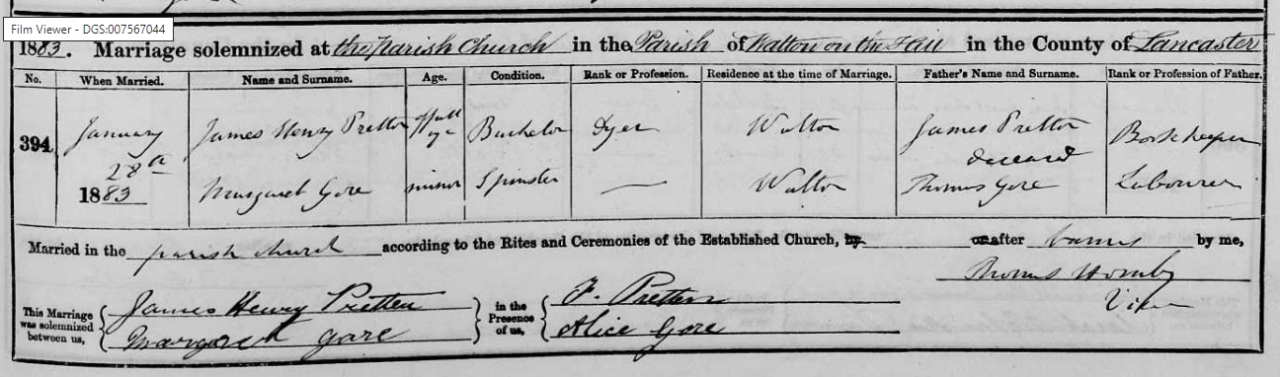 Film Viewer - DGS:007567044
1883. Marriage solemnized at the Parish Church in the Parish of Walton on the Hill in the County of Lancaster
No. When Married. Name and Surname. Age. Condition. Rank or Profession. Residence at the time of Marriage. Father's Name and Surname. Rank or Profession of Father.
394. January 28th 1883 James Henry Pretton Full age Bachelor Dyer Walton James Pretton deceased Bookkeeper
Margaret Gore minor Spinster — Walton Thomas Gore Labourer
Married in the parish church according to the Rites and Ceremonies of the Established Church, by or after banns by me,
Thomas Hornby
Vicar
This Marriage was solemnized between us, James Henry Pretten in the Presence of us, F. Pretten
Margaret Gore Alice Gore